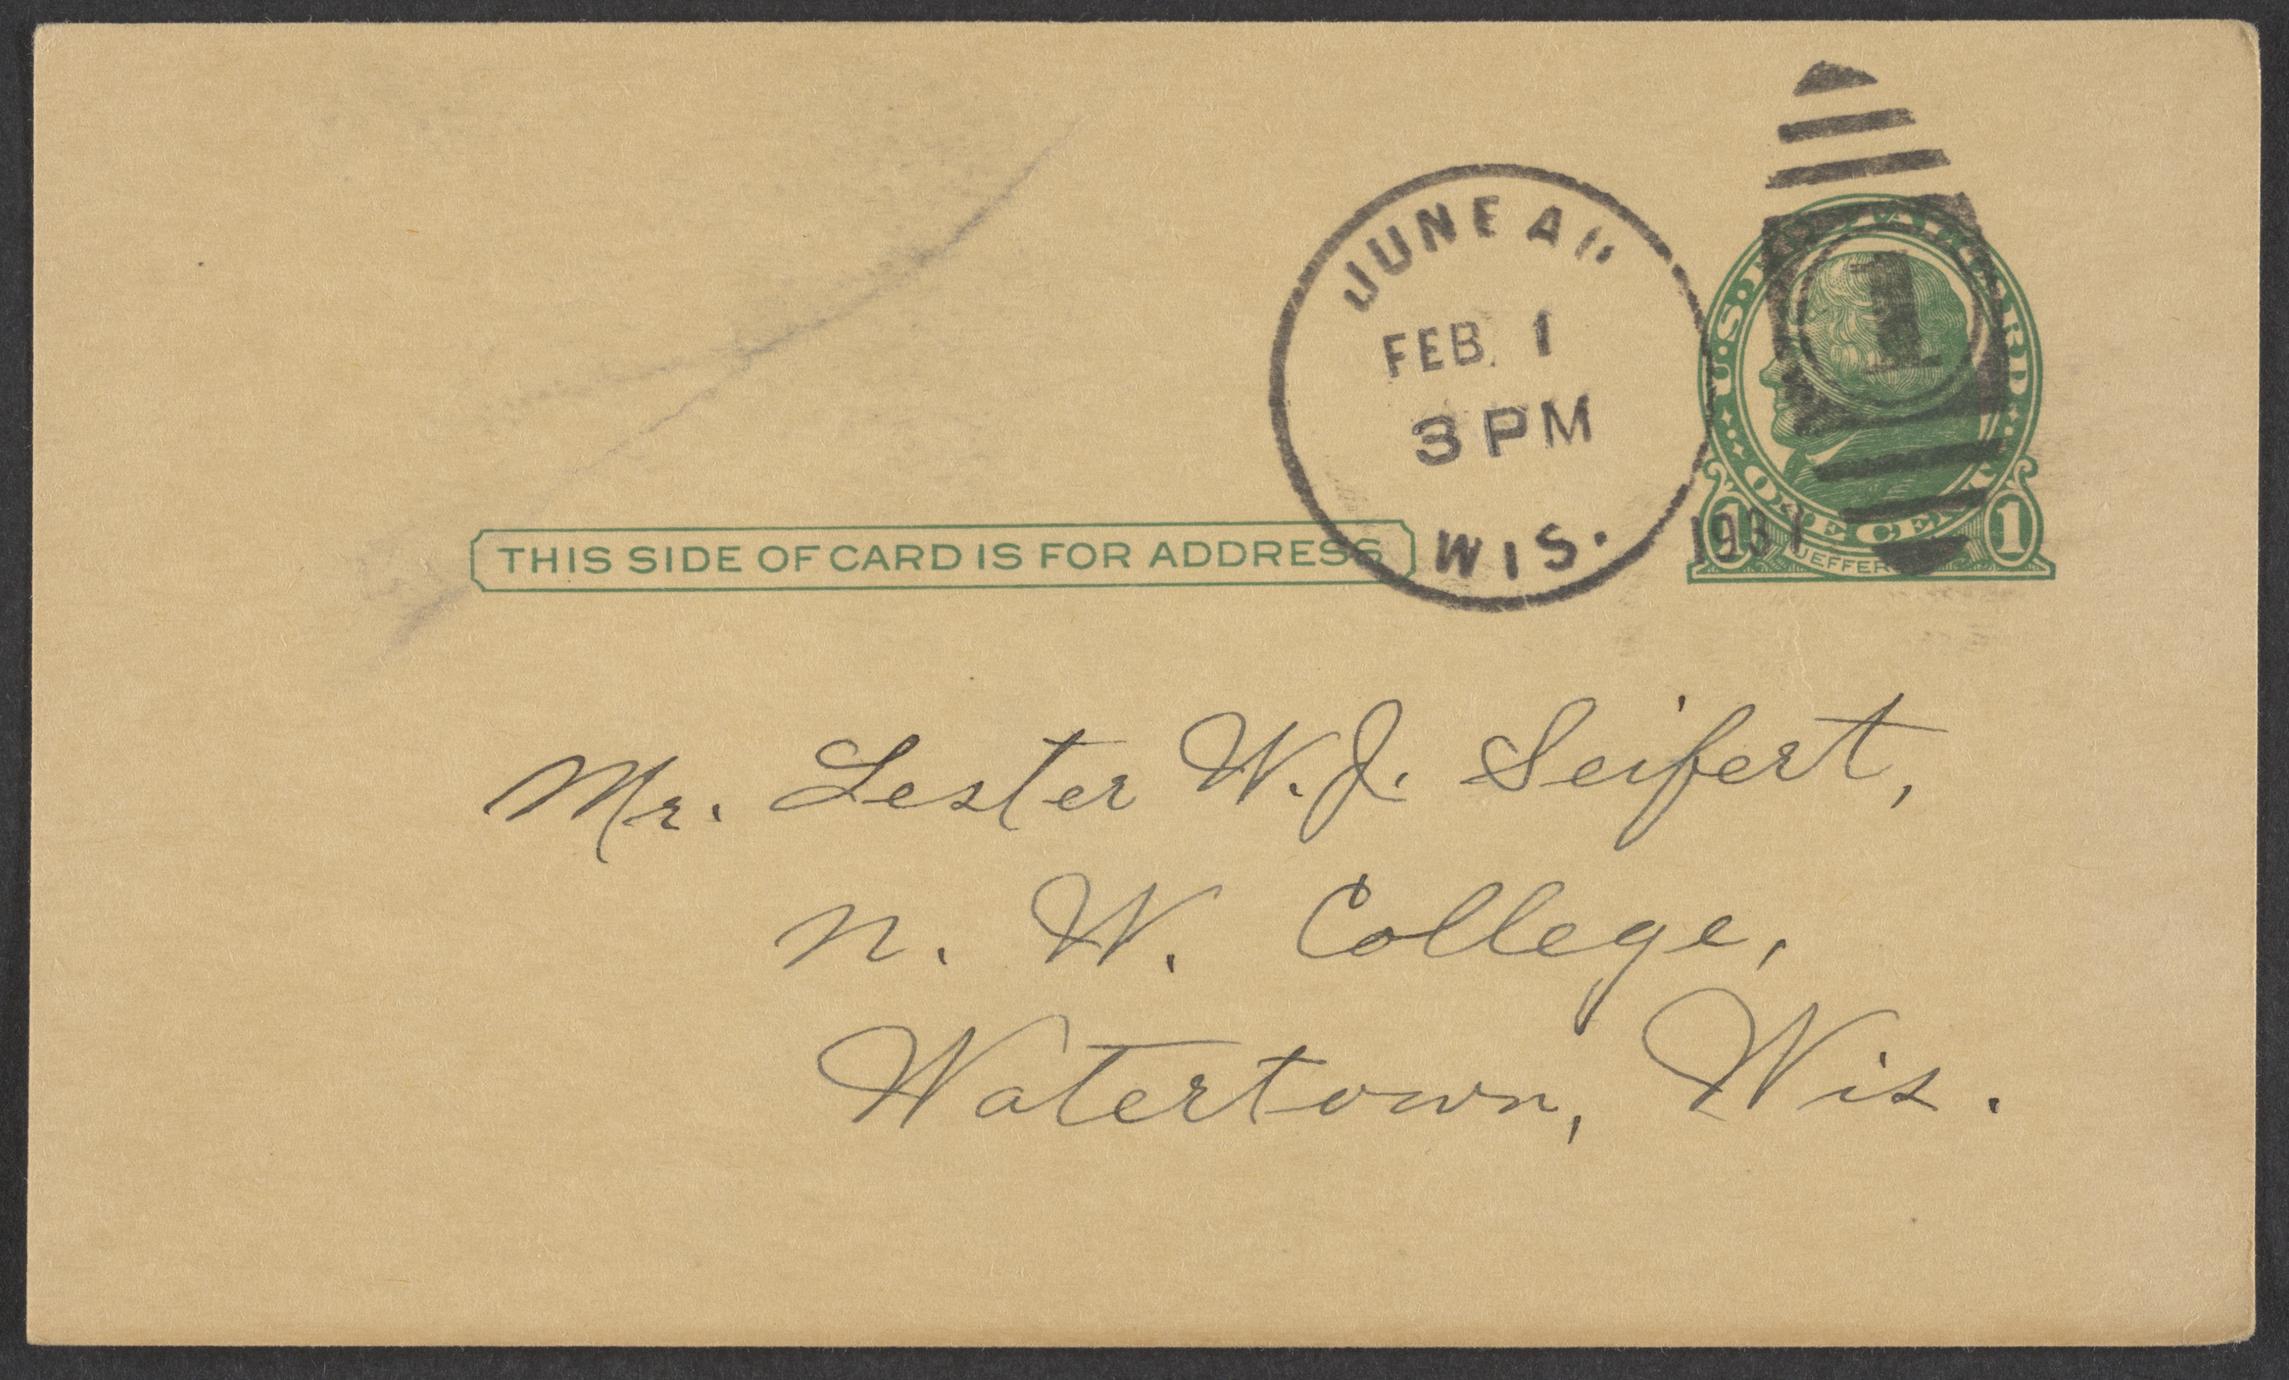 JUNEAU
FEB. 1
3 PM
WIS.
1931
1
U.S. POSTAL CARD
ONE CENT
1 JEFFERSON 1
THIS SIDE OF CARD IS FOR ADDRESS
Mr. Lester W. J. Seifert,
N. W. College,
Watertown, Wis.